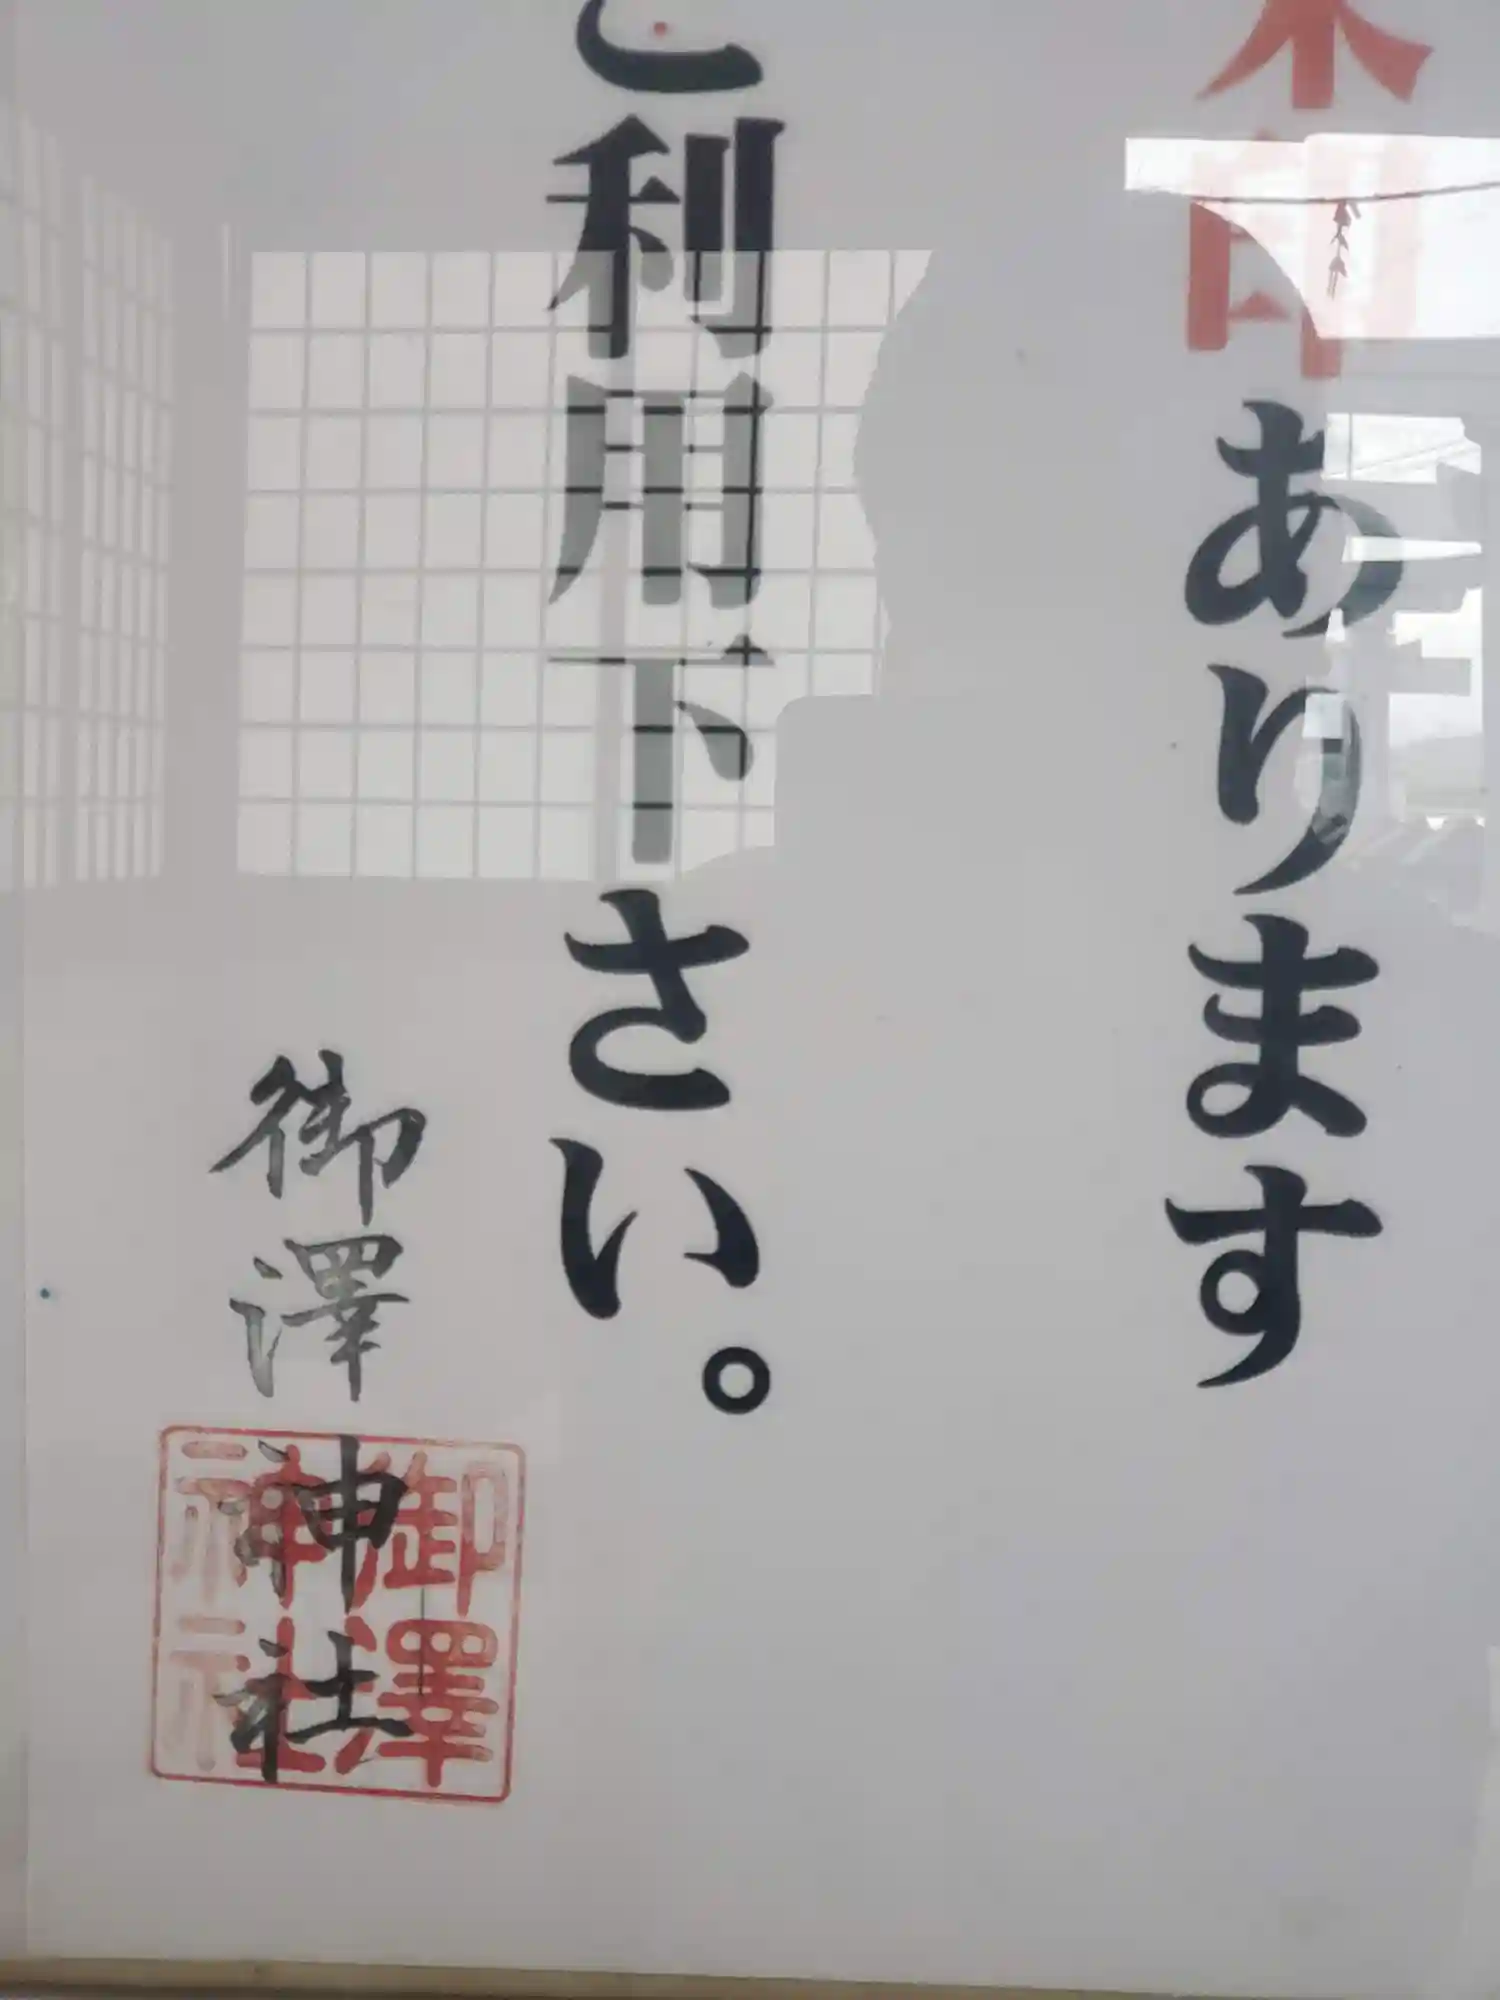 朱印あります
ご利用下さい。
御澤神社
御澤
神社